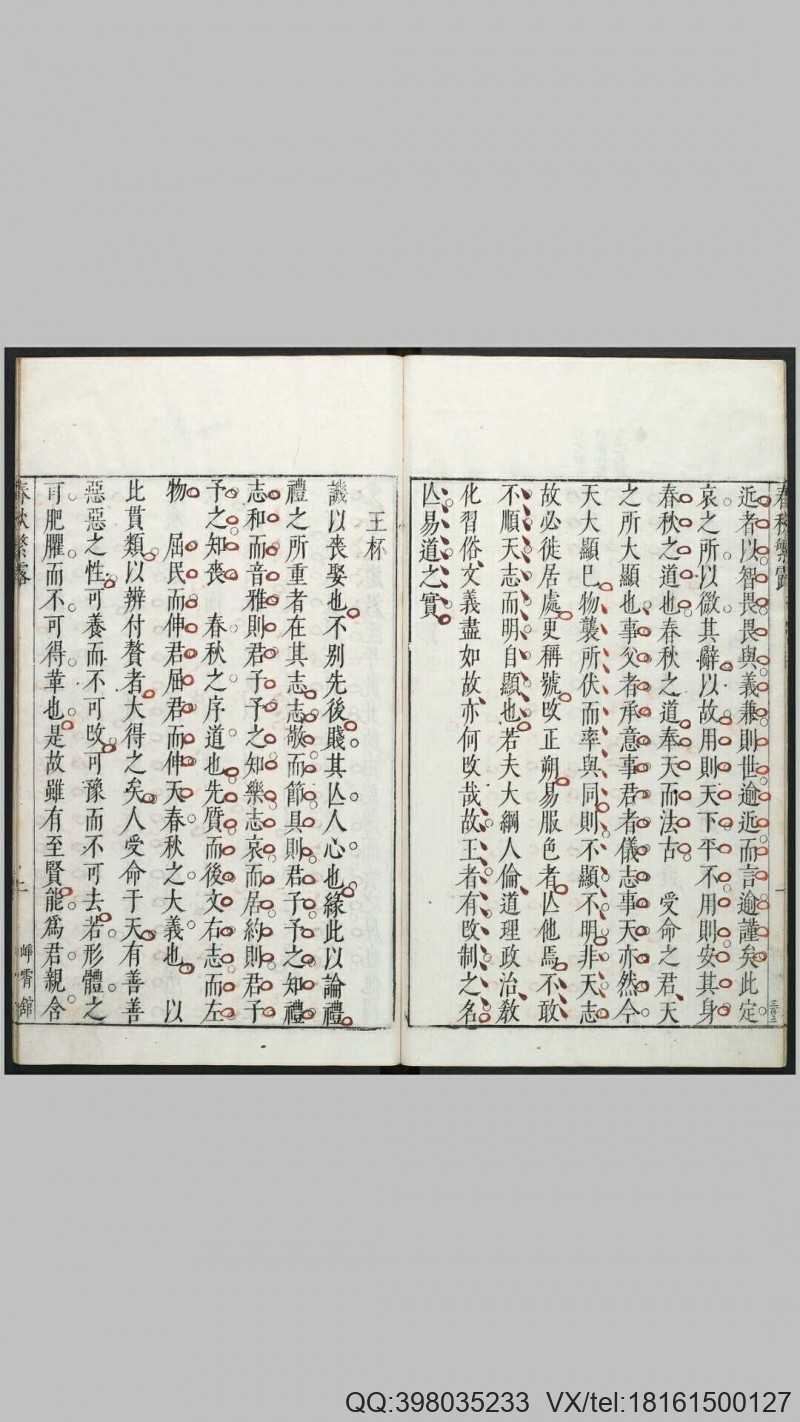 春秋繁露
近者以智畏畏與義兼則世逾近而言逾謹矣此定
哀之所以微其辭以故用則天下平不用則安其身
春秋之道也春秋之道奉天而法古　受命之君天
之所大顯也事父者承意事君者儀志事天亦然今
天大顯巳物襲所伐而率與同則不顯不明非天志
故必徙居處更稱號攺正朔易服色者亾他焉不敢
不順天志而明自顯也若夫大綱人倫道理政治敎
化習俗文義盡如故亦何攺哉故王者有攺制之名
亾易道之實
王杯
譏以喪娶也不别先後賤其亾人心也緣此以論禮
禮之所重者在其志志敬而節具則君子予之知禮
志和而音雅則君子予之知樂志哀而居約則君子
予之知喪　春秋之序道也先質而後文右志而左
物　屈民而伸君屈君而伸天春秋之大義也　以
比貫類以辨付贅者大得之矣人受命于天有善善
惡惡之性可養而不可攺可豫而不可去若形體之
可肥臞而不可得革也是故雖有至賢能爲君親含
春秋繁露
上
崢霄館
QQ:398035233 VX/tel:18161500127